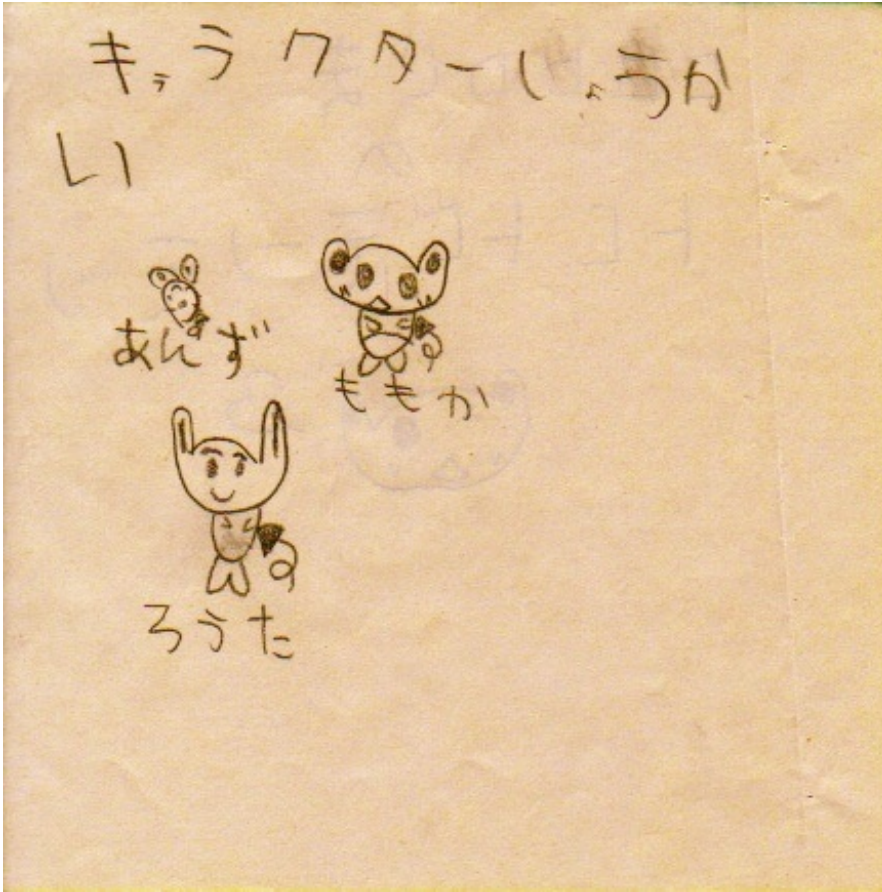 キャラクターしょうかい
あんず
ももか
ろうた